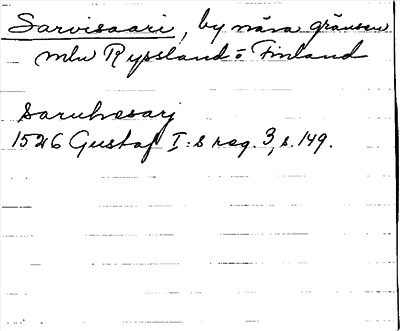 Sarvisaari, by nära gränsen
mln Ryssland = Finland
Saruhvesarj
1526 Gustaf I:s reg. 3, s. 149.